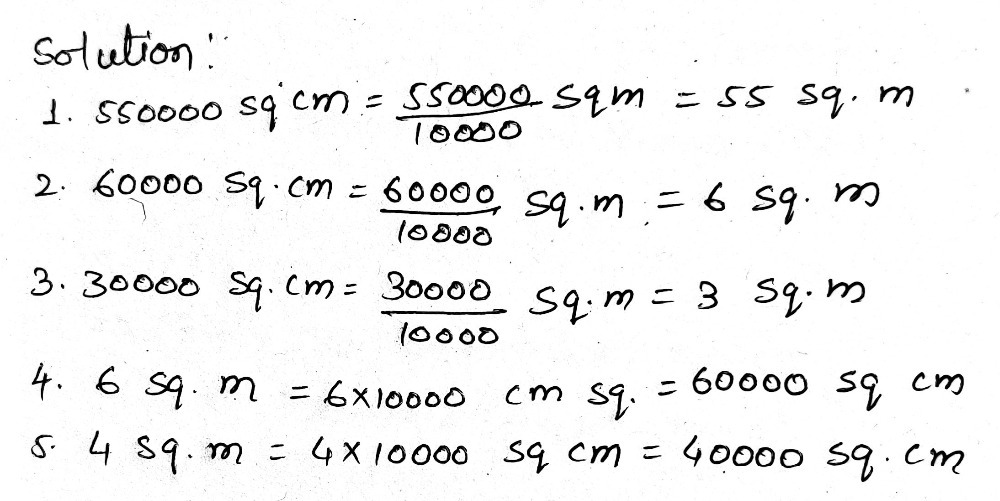 Solution:
1. 550000 sq cm = 550000/10000 sqm = 55 sq. m
2. 60000 sq. cm = 60000/10000 sq. m = 6 sq. m
3. 30000 sq. cm = 30000/10000 sq. m = 3 sq. m
4. 6 sq. m = 6x10000 cm sq. = 60000 sq cm
5. 4 sq. m = 4 x 10000 sq cm = 40000 sq. cm